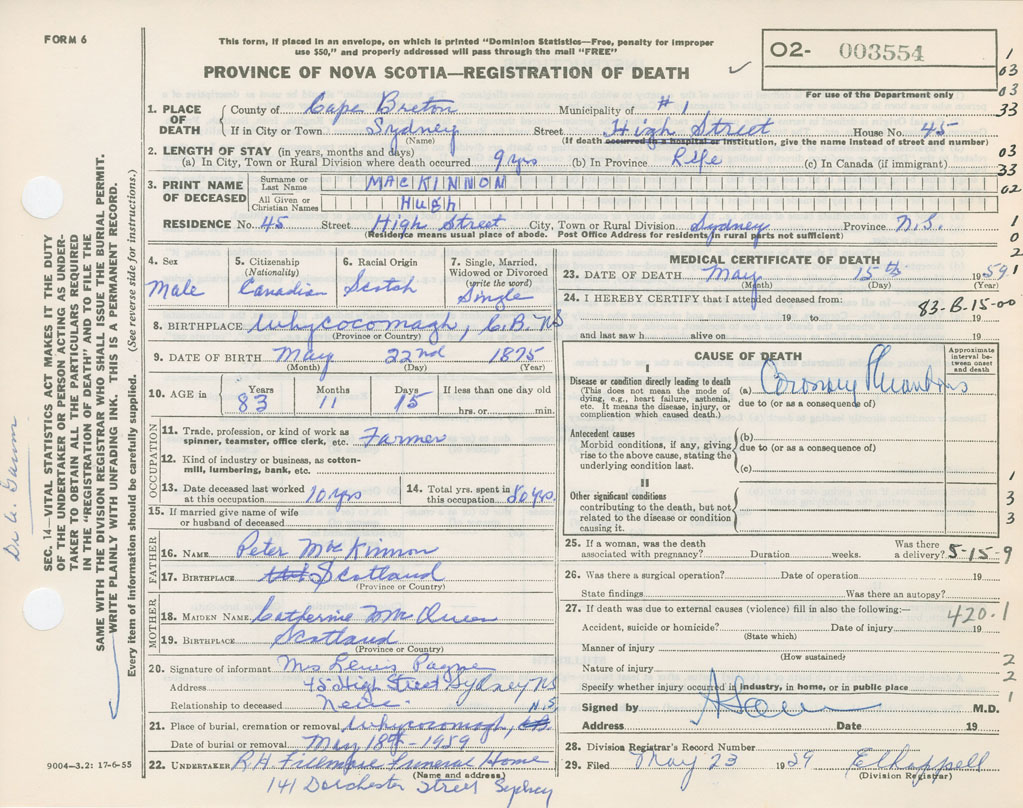 FORM 6
This form, if placed in an envelope, on which is printed "Dominion Statistics—Free, penalty for improper
use $50," and properly addressed will pass through the mail "FREE"
PROVINCE OF NOVA SCOTIA—REGISTRATION OF DEATH
O2- 003554
For use of the Department only
1
03
03
33
1. PLACE OF DEATH
County of Cape Breton Municipality of #1
If in City or Town Sydney Street High Street House No. 45
(Name) (If death occurred in a hospital or institution, give the name instead of street and number)
2. LENGTH OF STAY (in years, months and days)
(a) In City, Town or Rural Division where death occurred 9 yrs (b) In Province Life (c) In Canada (if immigrant)
03
33
02
3. PRINT NAME OF DECEASED
Surname or Last Name MACKINNON
All Given or Christian Names HUGH
RESIDENCE No. 45 Street High Street City, Town or Rural Division Sydney Province N.S.
(Residence means usual place of abode. Post Office Address for residents in rural parts not sufficient)
1
0
2
1
4. Sex
Male
5. Citizenship
(Nationality)
Canadian
6. Racial Origin
Scotch
7. Single, Married,
Widowed or Divorced
(write the word)
Single
8. BIRTHPLACE Whycocomagh, C.B. NS
(Province or Country)
9. DATE OF BIRTH May 22nd 1875
(Month) (Day) (Year)
10. AGE in
Years Months Days If less than one day old
83 11 15 hrs. or min.
OCCUPATION
11. Trade, profession, or kind of work as
spinner, teamster, office clerk, etc. Farmer
12. Kind of industry or business, as cotton-
mill, lumbering, bank, etc.
13. Date deceased last worked
at this occupation 10 yrs
14. Total yrs. spent in
this occupation 50 yrs.
15. If married give name of wife
or husband of deceased
FATHER
16. NAME Peter MacKinnon
17. BIRTHPLACE Scotland
(Province or Country)
MOTHER
18. MAIDEN NAME Catherine McQueen
19. BIRTHPLACE Scotland
(Province or Country)
20. Signature of informant Mrs Lewis Payne
Address 45 High Street Sydney NS
Relationship to deceased Neice. N.S.
21. Place of burial, cremation or removal Whycocomagh, C.B.
Date of burial or removal May 18th - 1959
22. UNDERTAKER R.H. Fillmore Funeral Home
(Name and address)
141 Dorchester Street Sydney
MEDICAL CERTIFICATE OF DEATH
23. DATE OF DEATH May 15th 1959
(Month) (Day) (Year)
24. I HEREBY CERTIFY that I attended deceased from:
83-B-15-00
19 to 19
and last saw h alive on 19
CAUSE OF DEATH
Approximate
interval be-
tween onset
and death
I
Disease or condition directly leading to death
(This does not mean the mode of
dying, e.g., heart failure, asthenia,
etc. It means the disease, injury, or
complication which caused death.)
(a) Coronary Thrombosis
due to (or as a consequence of)
Antecedent causes
Morbid conditions, if any, giving
rise to the above cause, stating the
underlying condition last.
(b)
due to (or as a consequence of)
(c)
II
Other significant conditions
contributing to the death, but not
related to the disease or condition
causing it.
1
3
3
25. If a woman, was the death
associated with pregnancy? Duration weeks. Was there
a delivery? 5-15-9
26. Was there a surgical operation? Date of operation 19
State findings Was there an autopsy?
27. If death was due to external causes (violence) fill in also the following:—
420.1
Accident, suicide or homicide? Date of injury 19
(State which)
Manner of injury
(How sustained)
Nature of injury
Specify whether injury occurred in industry, in home, or in public place
2
2
1
Signed by M.D.
Address Date 19
28. Division Registrar's Record Number
29. Filed May 23 1959 E Chappell
(Division Registrar)
SEC. 14—VITAL STATISTICS ACT MAKES IT THE DUTY
OF THE UNDERTAKER OR PERSON ACTING AS UNDER-
TAKER TO OBTAIN ALL THE PARTICULARS REQUIRED
IN THE "REGISTRATION OF DEATH" AND TO FILE THE
SAME WITH THE DIVISION REGISTRAR WHO SHALL ISSUE THE BURIAL PERMIT.
WRITE PLAINLY WITH UNFADING INK. THIS IS A PERMANENT RECORD.
Every item of information should be carefully supplied. (See reverse side for instructions.)
9004—3.2: 17-6-55